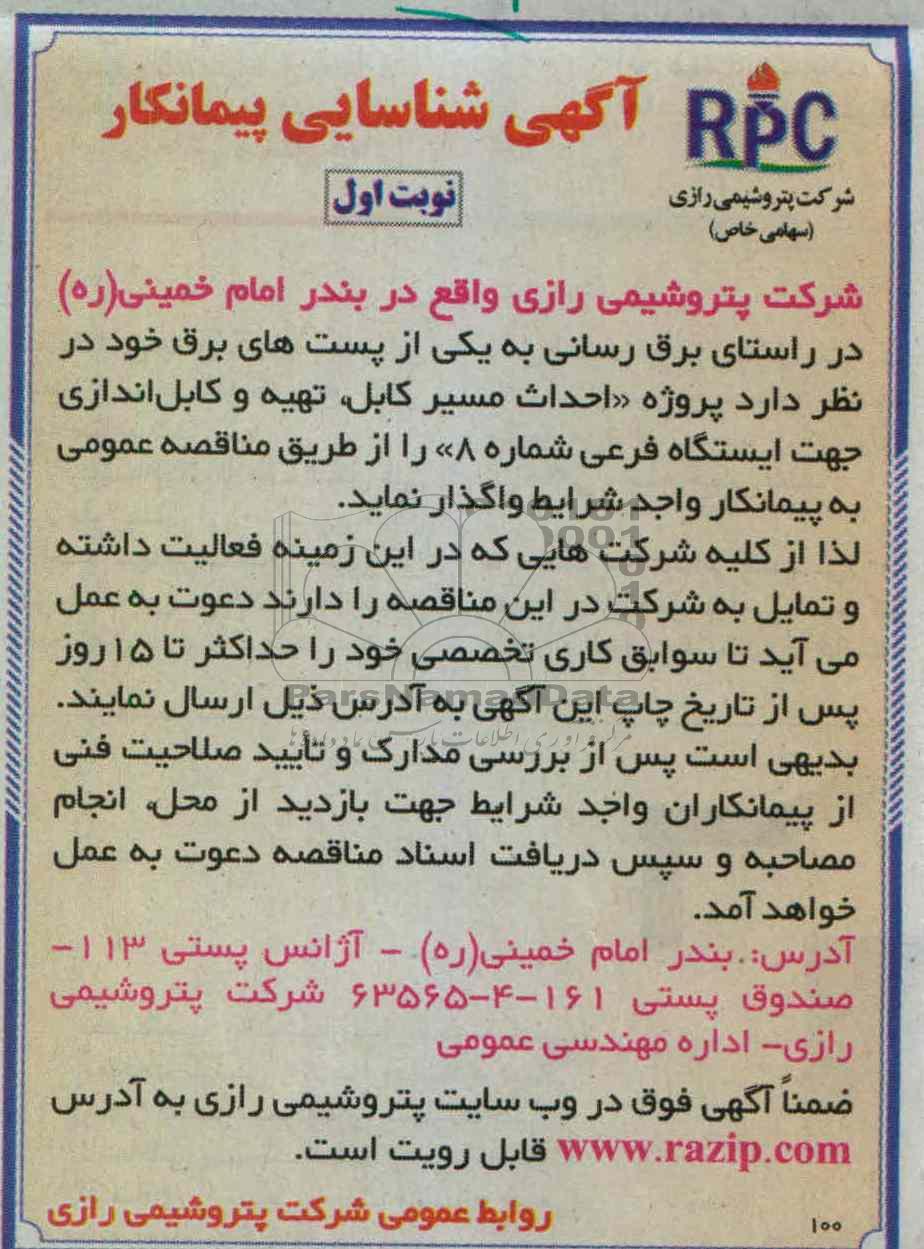 آگهی شناسایی پیمانکار
RPC
شرکت پتروشیمی رازی
(سهامی خاص)
نوبت اول
شرکت پتروشیمی رازی واقع در بندر امام خمینی(ره)
در راستای برق رسانی به یکی از پست های برق خود در
نظر دارد پروژه «احداث مسیر کابل، تهیه و کابل‌اندازی
جهت ایستگاه فرعی شماره ۸» را از طریق مناقصه عمومی
به پیمانکار واجد شرایط واگذار نماید.
لذا از کلیه شرکت هایی که در این زمینه فعالیت داشته
و تمایل به شرکت در این مناقصه را دارند دعوت به عمل
می آید تا سوابق کاری تخصصی خود را حداکثر تا ۱۵ روز
پس از تاریخ چاپ این آگهی به آدرس ذیل ارسال نمایند.
ParsNamadData
بدیهی است پس از بررسی مدارک و تأیید صلاحیت فنی
از پیمانکاران واجد شرایط جهت بازدید از محل، انجام
مصاحبه و سپس دریافت اسناد مناقصه دعوت به عمل
خواهد آمد.
آدرس: بندر امام خمینی(ره) - آژانس پستی ۱۱۳-
صندوق پستی ۱۶۱-۴-۶۳۵۶۵ شرکت پتروشیمی
رازی- اداره مهندسی عمومی
ضمناً آگهی فوق در وب سایت پتروشیمی رازی به آدرس
www.razip.com قابل رویت است.
روابط عمومی شرکت پتروشیمی رازی
۱۰۰